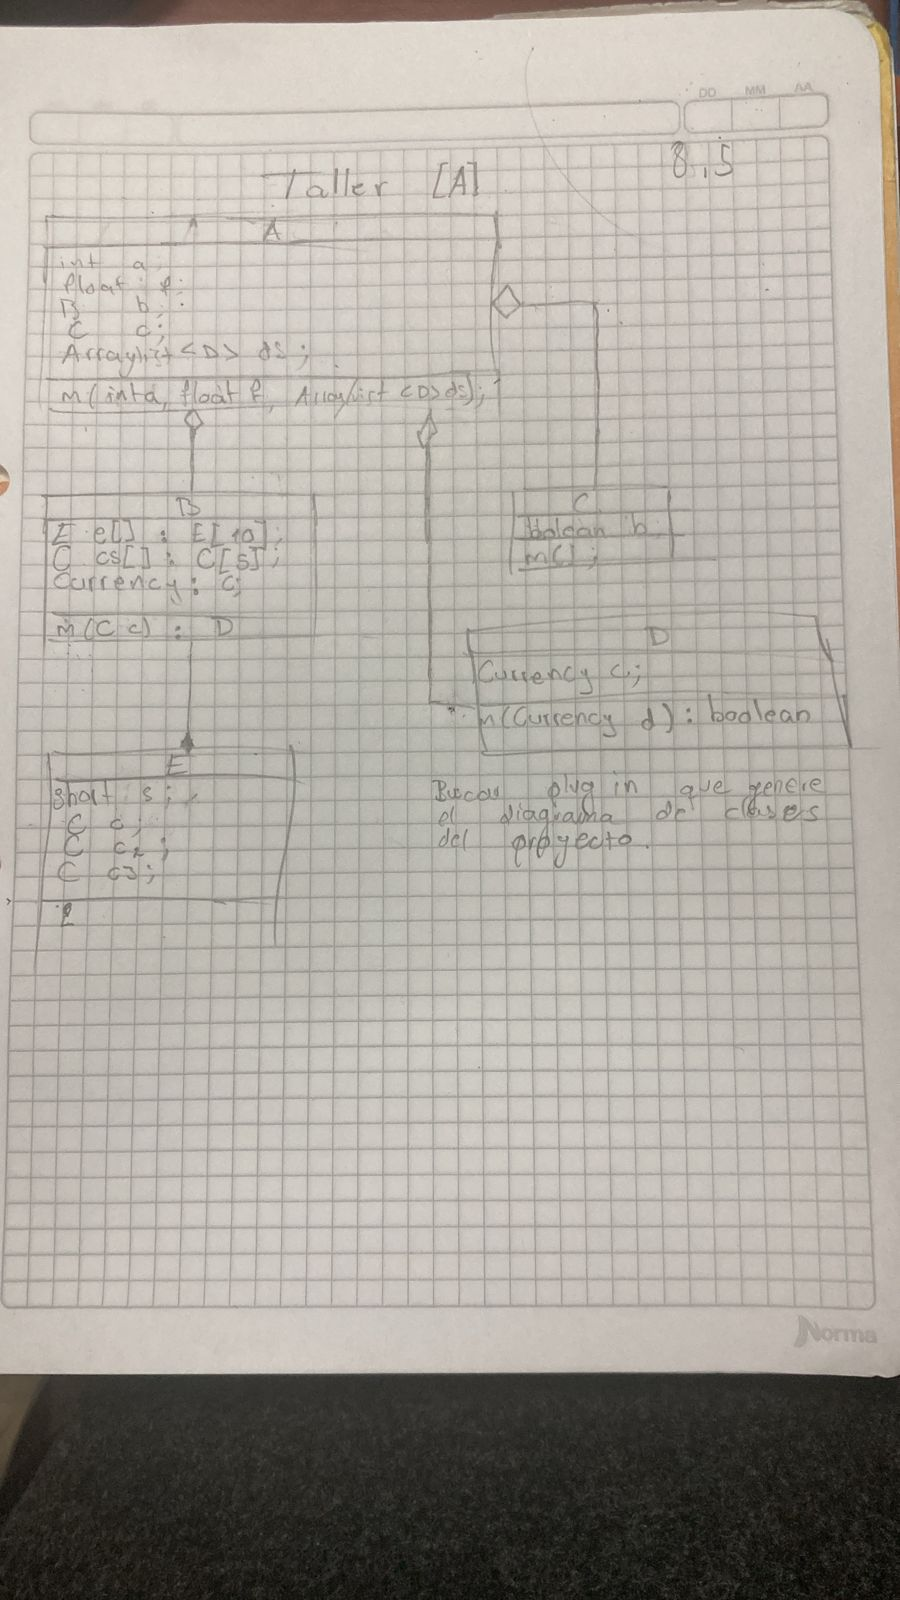 DD MM AA
8,5
Taller [A]
A
int a
float f;
B b;
C c;
Arraylist <D> ds;
m(int a, float f, Arraylist <D> ds);
B
E e[] : E[10];
C cs[] : C[5];
Currency : c;
m(C c) : D
C
boolean b
m();
D
Currency c;
m(Currency d) : boolean
E
short s;
C c;
C c2;
C c3;
Buscar plug in que genere
el diagrama de clases
del proyecto.
Norma